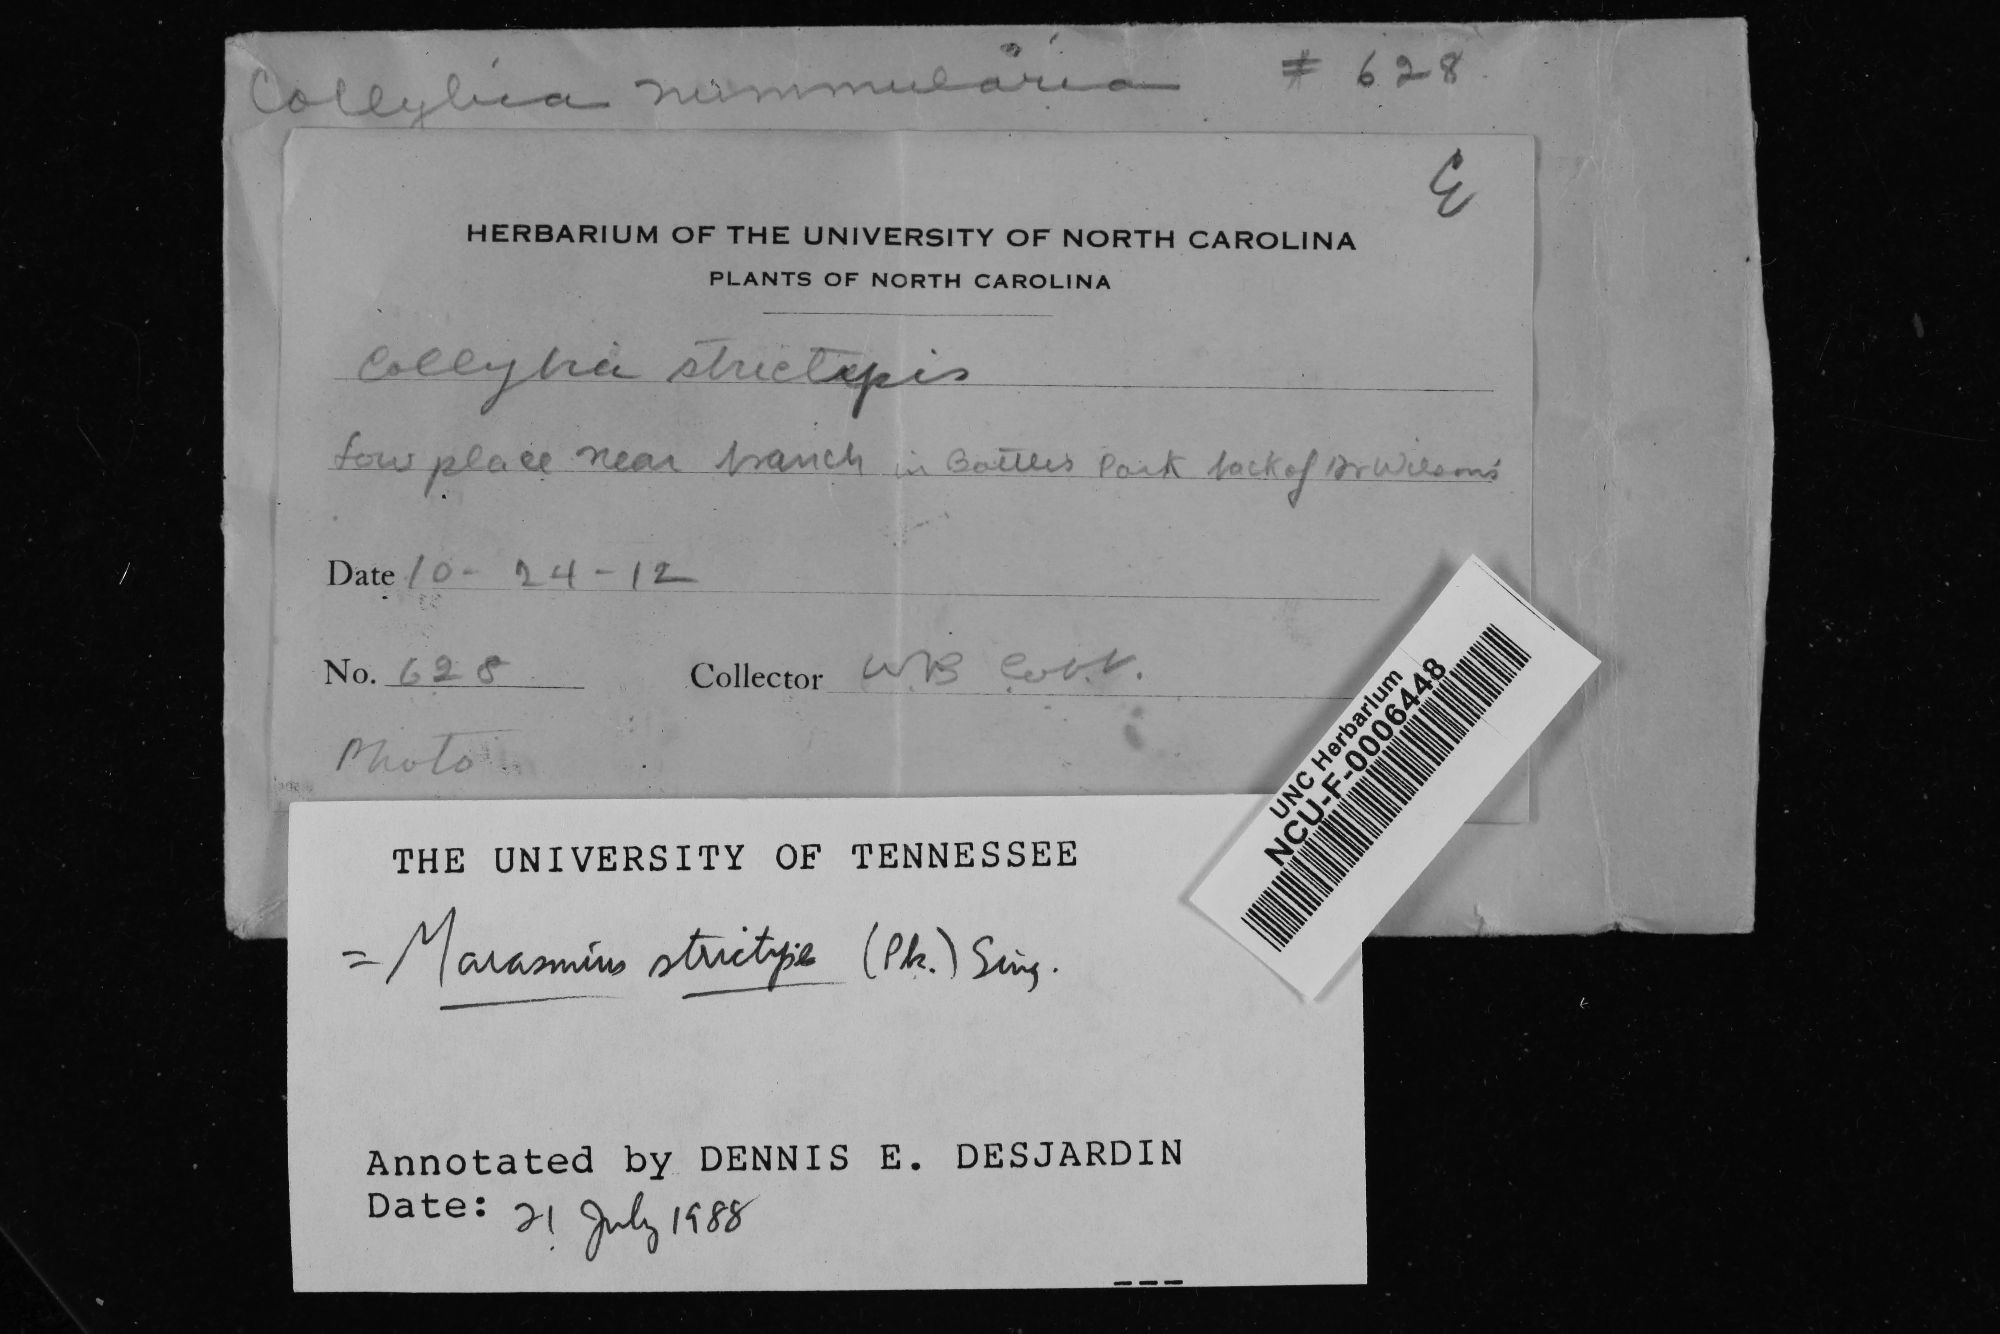 Collybia nummularia # 628
E
HERBARIUM OF THE UNIVERSITY OF NORTH CAROLINA
PLANTS OF NORTH CAROLINA
Collybia strictipis
Low place near branch in Battles Park back of Dr Wilson's
Date 10-24-12
No. 628 Collector W.B. Cobb.
Photo
UNC Herbarium
NCU-F-0006448
THE UNIVERSITY OF TENNESSEE
= Marasmius strictipes (Pk.) Sing.
Annotated by DENNIS E. DESJARDIN
Date: 21 July 1988